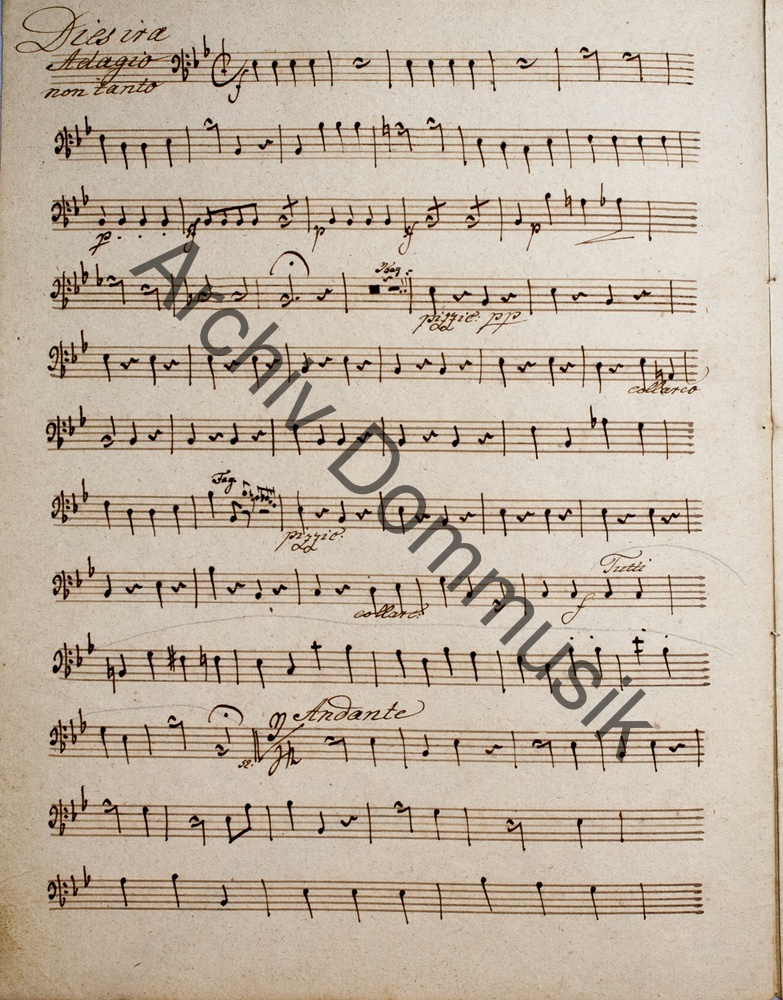 Dies iræ
Adagio
non tanto
f
p. ff p ff p
Fag:
pizzic: pp
collarco
Fag.
pizzic:
collarc:
Tutti
f
Andante
52.
Archiv Dommusik